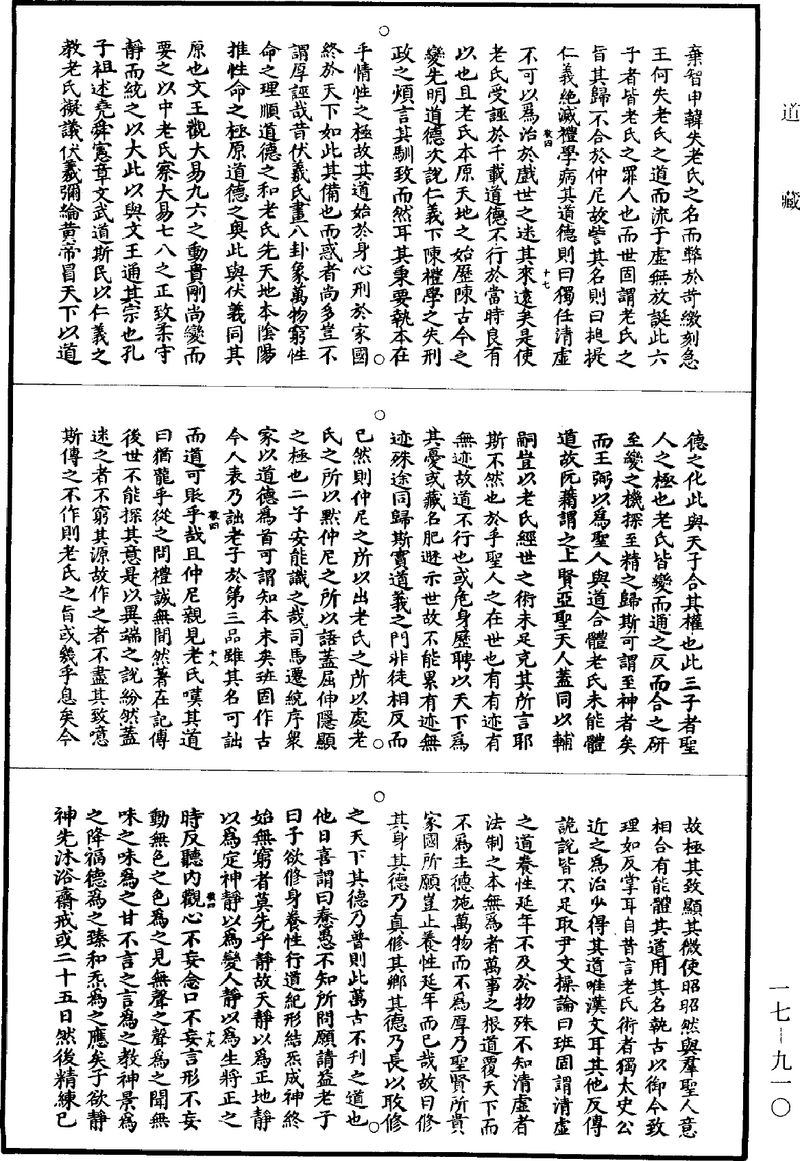 道藏
棄智申韓失老氏之名而弊於苛繳刻急
王何失老氏之道而流于虛無放誕此六
子者皆老氏之罪人也而世固謂老氏之
旨其歸不合於仲尼故訾其名則曰搥提
仁義絕滅禮學病其道德則曰獨任清虛
不可以爲治於戲世之迷其來遠矣是使
敬四
十七
老氏受誣於千載道德不行於當時良有
以也且老氏本原天地之始歷陳古今之
變先明道德次說仁義下陳禮學之失刑
政之煩言其馴致而然耳其秉要執本在
乎情性之極故其道始於身心刑於家國
終於天下如此其備也而惑者尚多豈不
謂厚誣哉昔伏羲氏畫八卦象萬物窮性
命之理順道德之和老氏先天地本陰陽
推性命之極原道德之奧此與伏羲同其
原也文王觀大易九六之動貴剛尚變而
要之以中老氏察大易七八之正致柔守
靜而統之以大此以與文王通其宗也孔
子祖述堯舜憲章文武道斯氏以仁義之
教老氏擬議伏羲彌綸黄帝冒天下以道
德之化此與天子合其權也此三子者聖
人之極也老氏皆變而通之反而合之研
至變之機探至精之歸斯可謂至神者矣
而王弼以爲聖人與道合體老氏未能體
道故阮藉謂之上賢亞聖天人蓋同以輔
嗣豈以老氏經世之術未足充其所言耶
斯不然也於乎聖人之在世也有有迹有
無迹故道不行也或危身歷聘以天下爲
其憂或藏名肥遯示世故不能累有迹無
迹殊途同歸斯實道義之門非徒相反而
已然則仲尼之所以出老氏之所以處老
氏之所以黙仲尼之所以語蓋屈伸隱顯
之極也二子安能識之哉司馬遷統序衆
家以道德爲首可謂知本末矣班固作古
今人表乃詘老子於第三品雖其名可詘
而道可貶乎哉且仲尼親見老氏嘆其道
敬四
十八
曰猶龍乎從之問禮誠無間然著在記傳
後世不能探其意是以異端之說紛然蓋
迷之者不窮其源故作之者不盡其致噫
斯傳之不作則老氏之旨或幾乎息矣今
故極其致顯其微使昭昭然與羣聖人意
相合有能體其道用其名執古以御今致
理如反掌耳自昔言老氏術者獨太史公
近之爲治少得其道唯漢文耳其他反傳
詭說皆不足取尹文操論曰班固謂清虛
之道養性延年不及於物殊不知清虛者
法制之本無爲者萬事之根道覆天下而
不爲主德施萬物而不爲厚乃聖賢所貴
家國所願豈止養性延年而已哉故曰修
其身其德乃真修其鄉其德乃長以攺修
之天下其德乃普則此萬古不刊之道也
他日喜謂曰㤗愚不知所問願請益老子
曰子欲修身養性行道紀形結炁成神終
始無窮者莫先乎靜故天靜以爲正地靜
以爲定神靜以爲變人靜以爲生將正之
時反聽内觀心不妄念口不妄言形不妄
敬四
十九
動無色之色爲之見無聲之聲爲之聞無
味之味爲之甘不言之言爲之教神景爲
之降福德爲之臻和炁爲之應矣子欲靜
神先沐浴齋戒或二十五日然後精練已
一七—九一〇